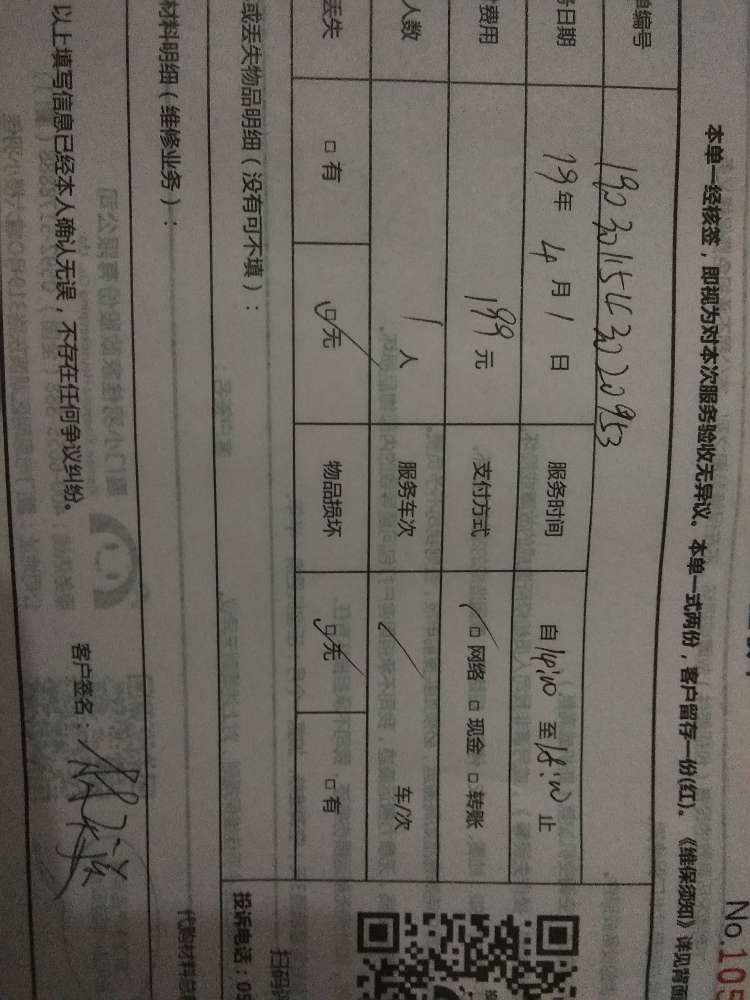 No.105
本单一经核签，即视为对本次服务验收无异议。本单一式两份，客户留存一份(红)。《维保须知》详见背面
单编号
务日期 19年 4月 1日 服务时间 自14:00 至18:00 止
费用 199元 支付方式 □ 网络 □ 现金 □ 转账
人数 1人 服务车次 / 车/次
丢失 □ 有 □ 无 物品损坏 □ 无 □ 有
或丢失物品明细（没有可不填）：
材料明细（维修业务）：
扫码
投诉电话：05
代购材料总
以上填写信息已经本人确认无误，不存在任何争议纠纷。
客户签名：